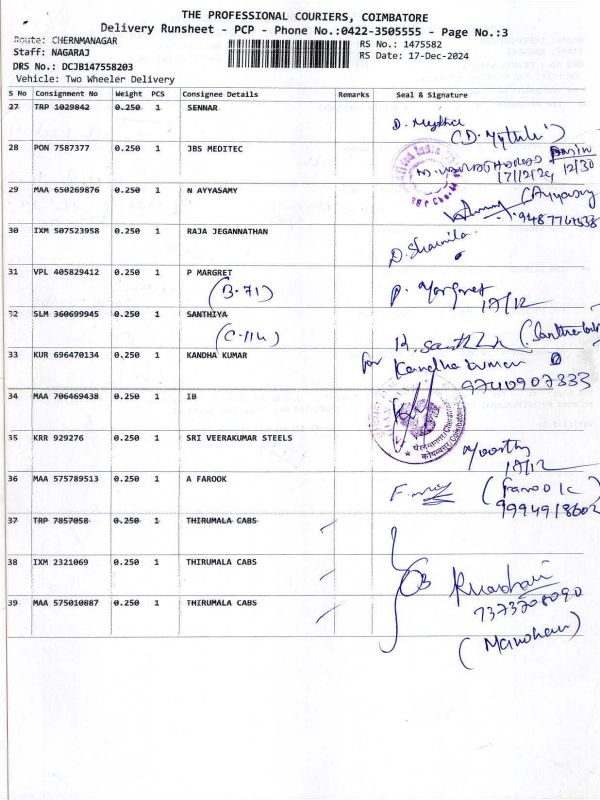 THE PROFESSIONAL COURIERS, COIMBATORE
Delivery Runsheet - PCP - Phone No.:0422-3505555 - Page No.:3
Route: CHERNMANAGAR
RS No.: 1475582
Staff: NAGARAJ
RS Date: 17-Dec-2024
DRS No.: DCJB147558203
Vehicle: Two Wheeler Delivery
S No Consignment No Weight PCS Consignee Details Remarks Seal & Signature
27 TRP 1029842 0.250 1 SENNAR
D. Mythili
(D. Mythili)
28 PON 7587377 0.250 1 JBS MEDITEC
17/12/24 12/30
29 MAA 650269876 0.250 1 N AYYASAMY
(Ayyasamy
30 IXM 507523958 0.250 1 RAJA JEGANNATHAN
D. Sharmila
31 VPL 405829412 0.250 1 P MARGRET
(B-71)
P. Margret
17/12
32 SLM 360699945 0.250 1 SANTHIYA
(C-114)
33 KUR 696470134 0.250 1 KANDHA KUMAR
for Kandha kumar
9740907333
34 MAA 706469438 0.250 1 IB
35 KRR 929276 0.250 1 SRI VEERAKUMAR STEELS
Moorthy
17/12
36 MAA 575789513 0.250 1 A FAROOK
(Farook)
9994918602
37 TRP 7857058 0.250 1 THIRUMALA CABS
38 IXM 2321069 0.250 1 THIRUMALA CABS
03
7373708090
39 MAA 575010887 0.250 1 THIRUMALA CABS
(Manohari)